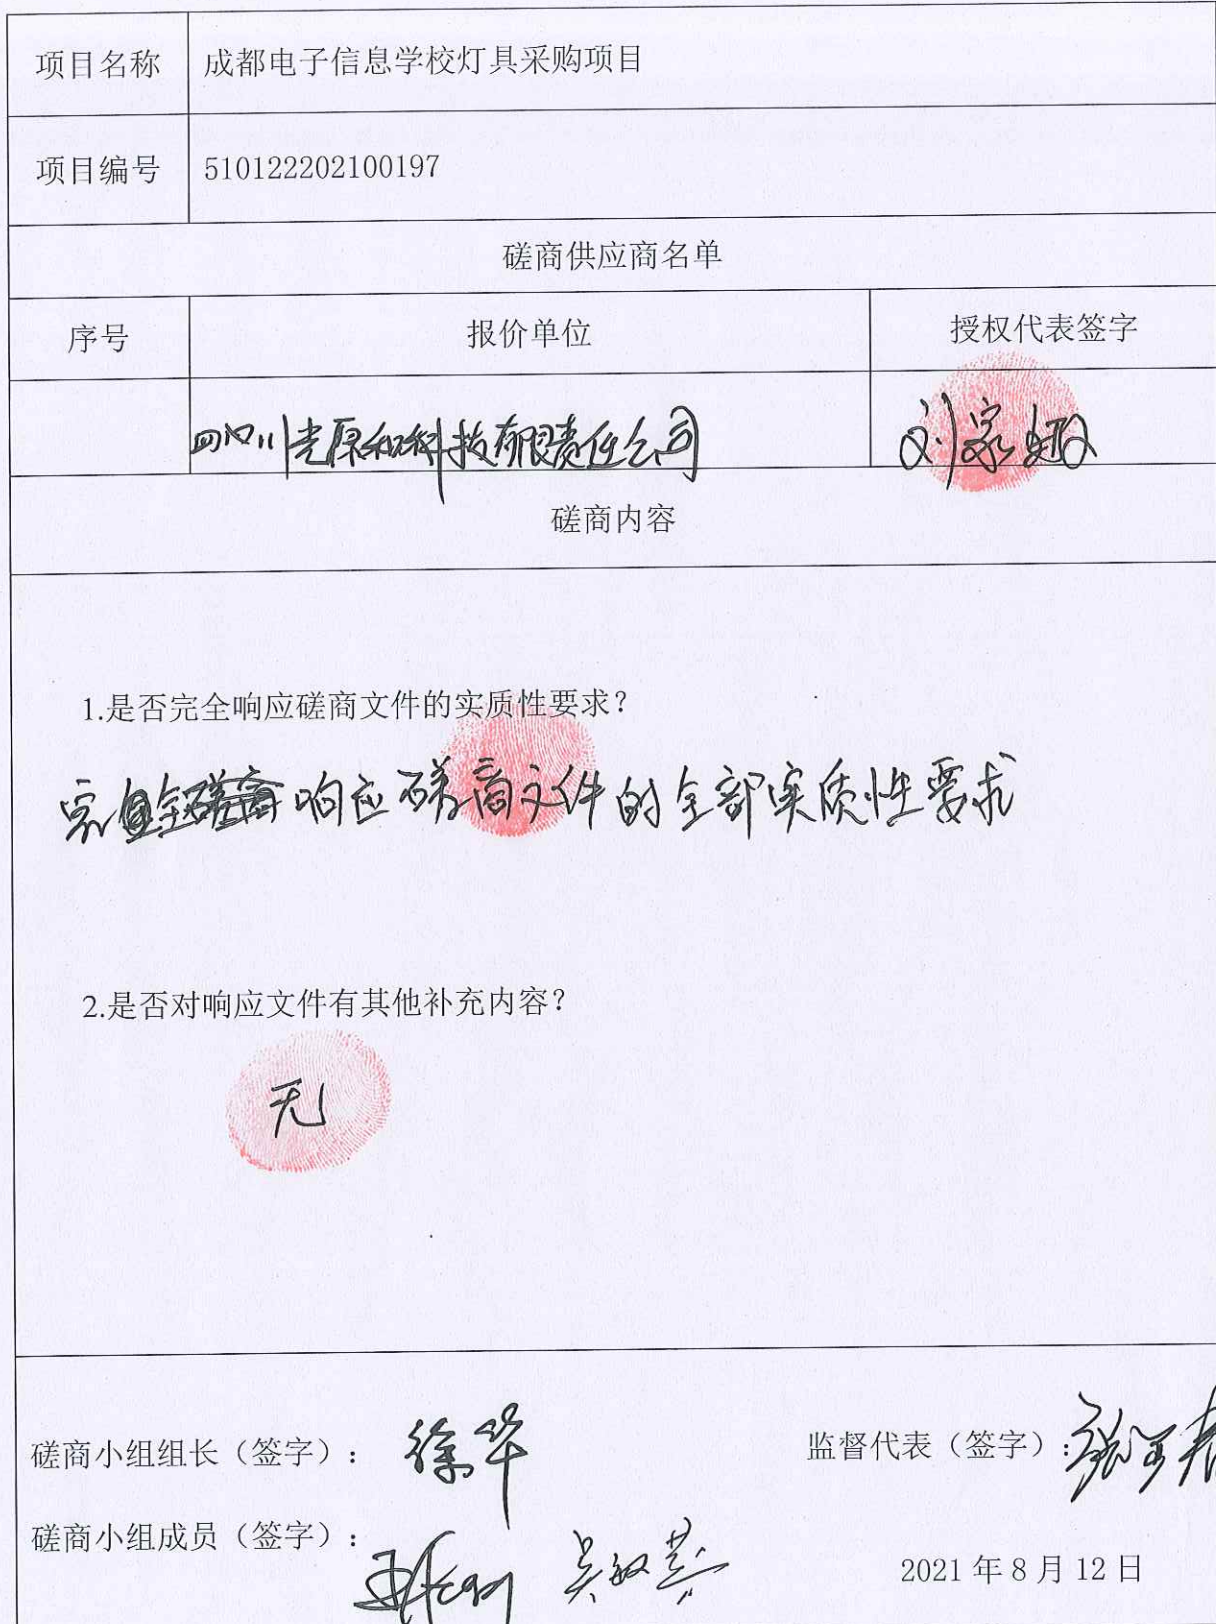 项目名称 成都电子信息学校灯具采购项目
项目编号 510122202100197
磋商供应商名单
序号 报价单位 授权代表签字
四川光原和科技有限责任公司 刘家
磋商内容
1.是否完全响应磋商文件的实质性要求?
完全响应磋商文件的全部实质性要求
2.是否对响应文件有其他补充内容?
无
磋商小组组长（签字）： 徐华 监督代表（签字）：
磋商小组成员（签字）： 吴
2021年8月12日